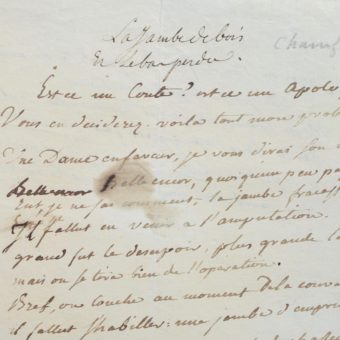 La Jambe de bois
et Le bas perdu.
Chamf
Est ce un Conte? est ce un Apolo
Vous en déciderez. voilà tout mon prolo
Une Dame en faveur, je vous dirai son n
Belle encor, quoiqu'un peu pa
Eut, je ne sai comment, la jambe fracass
Il fallut en venir à l'amputation.
grand fut le desespoir, plus grande la
mais on se tira bien de l'opération.
Bref, on touche au moment de la conva
il fallut s'habiller: une jambe d'empru